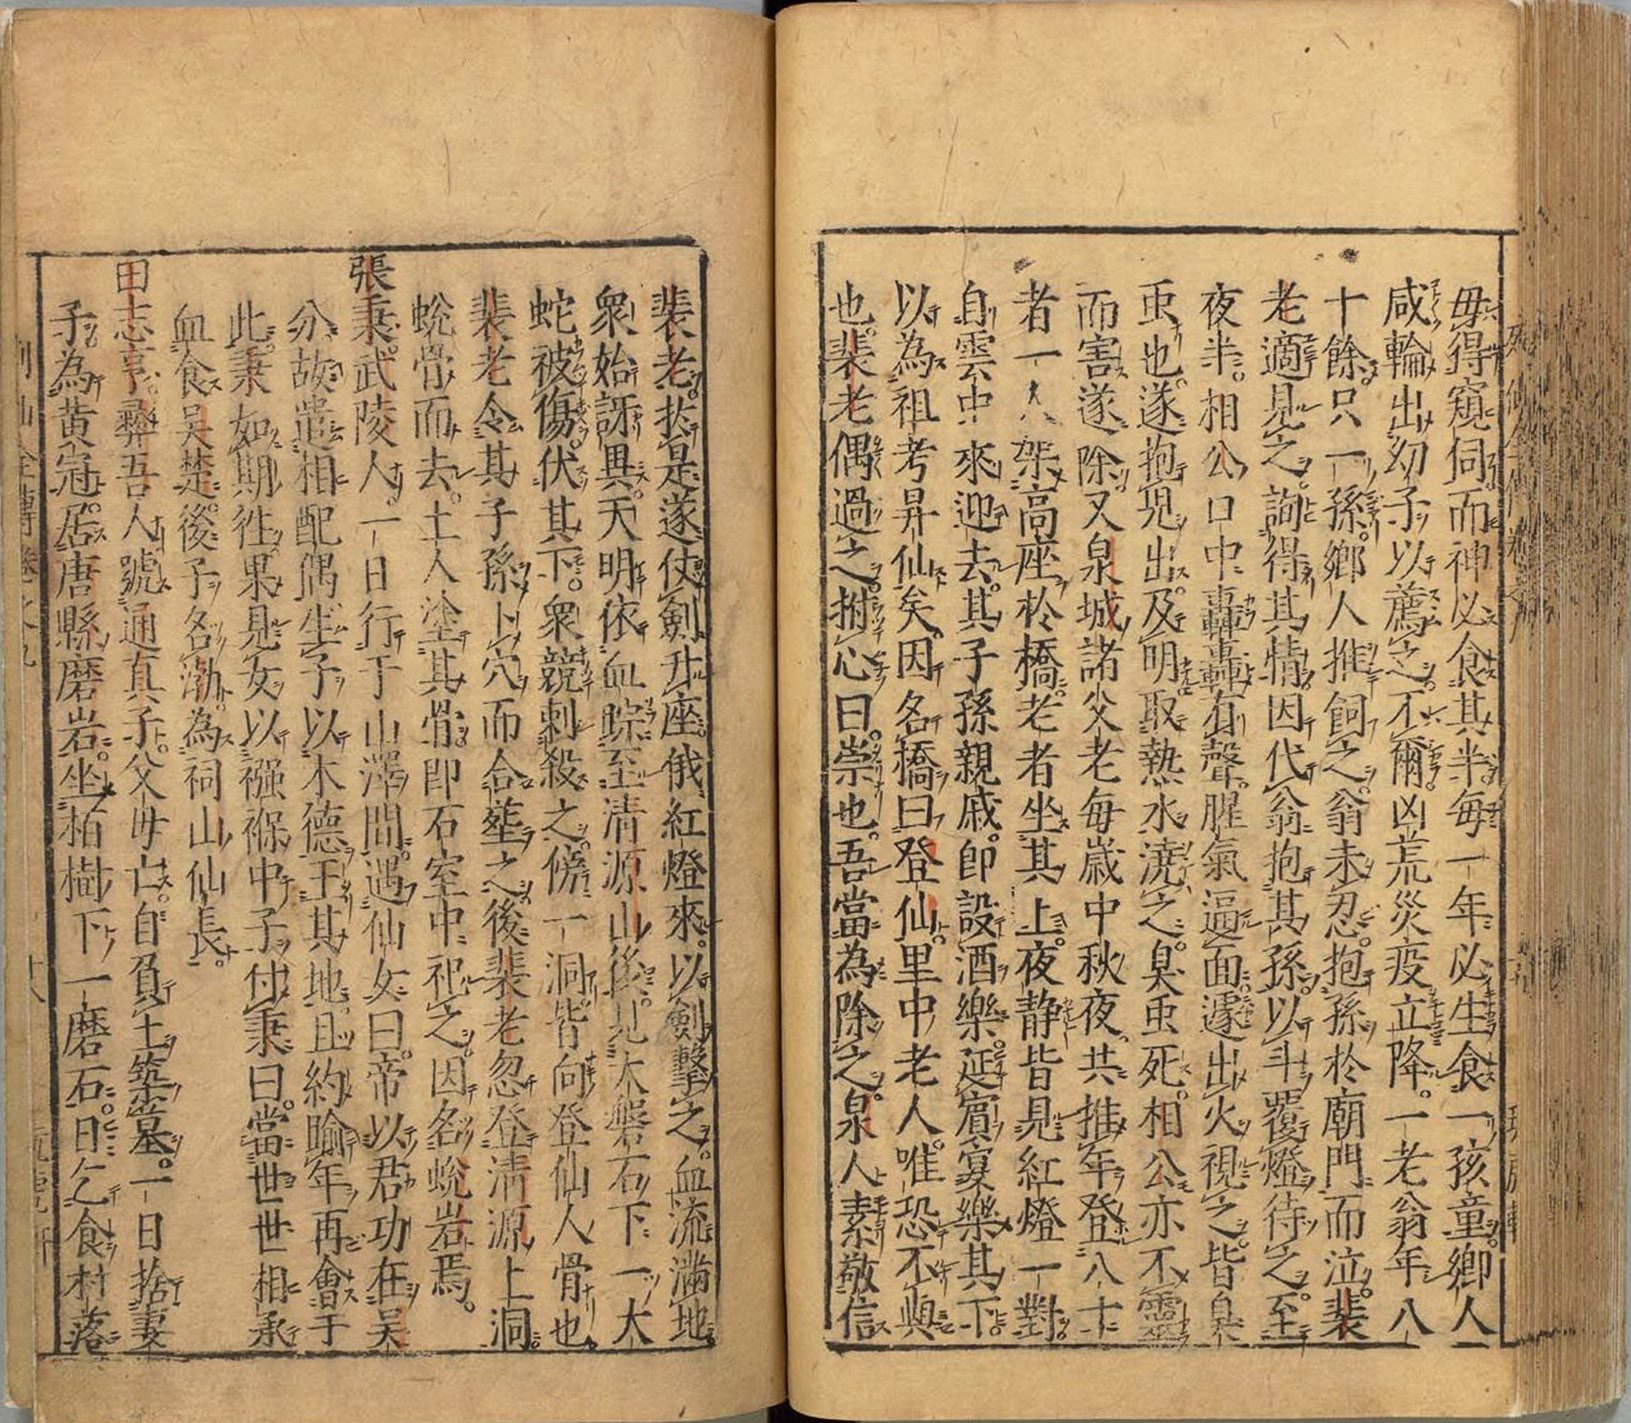 毋得窺伺而神必食其半每一年必生食一孩童鄉人
咸輪出幼子以薦之不爾凶荒災疫立降一老翁年八
十餘只一孫鄉人推飼之翁未忍抱孫於廟門而泣裴
老適見之詢得其情因代翁抱其孫以斗覆燈待之至
夜半相公口中轟轟有聲腥氣逼面遽出火視之皆臭
䖝也遂抱兒出及明取熱水澆之臭䖝死相公亦不靈
而害遂除又泉城諸父老每歲中秋夜共推年登八十
者一人架高座於橋老者坐其上夜静皆見紅燈一對
自雲中來迎去其子孫親戚即設酒樂延賓宴樂其下
以為祖考昇仙矣因名橋曰登仙里中老人唯恐不與
也裴老偶過之拊心曰崇也吾當為除之泉人素敬信
裴老於是遂仗劍升座俄紅燈來以劍擊之血流滿地
衆始訝異天明依血踪至清源山後見大磐石下一大
蛇被傷伏其下衆競刺殺之傍一洞皆向登仙人骨也
裴老令其子孫卜穴而合塟之後裴老忽登清源上洞
蛻骨而去土人塗其骨即石室中祀之因名蛻岩焉
張秉武陵人一日行于山澤間遇仙女曰帝以君功在吴
分故遣相配偶生子以木德王其地且約踰年再會于
此秉如期徃果見女以襁褓中子付秉曰當世世相承
血食吴楚後子名渤為祠山仙長
田志亨彝吾人號通真子父毋亡自負土築墓一日捨妻
子為黄冠居唐縣磨岩坐栢樹下一磨石日乞食村落
列仙全傳卷之九 十八